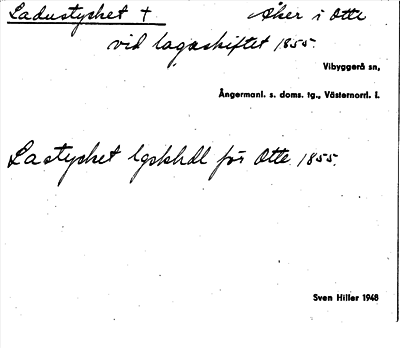 Ladustycket + Åker i Otte
vid lagaskiftet 1855.
Vibyggerå sn,
Ångermanl. s. doms. tg., Västernorrl. l.
Lastycket lgskhdl för Otte 1855.
Sven Hiller 1948